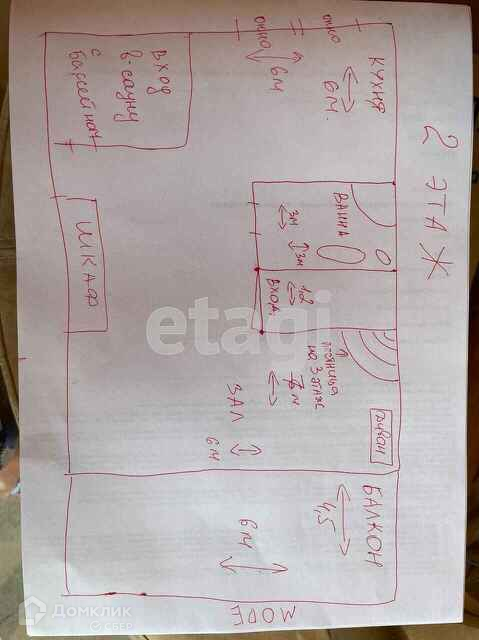 2 ЭТАЖ
КУХНЯ
6М.
6М
окно
окно
ВХОД
в-сауну
с
бассейном
ШКАФ
ВАННА
3м
3м
1,2
ВХОД.
лестница
на 3 этаж
ЗАЛ
6м
диван
БАЛКОН
4,5
6М
МОРЕ
etagi
Домклик
С СБЕР